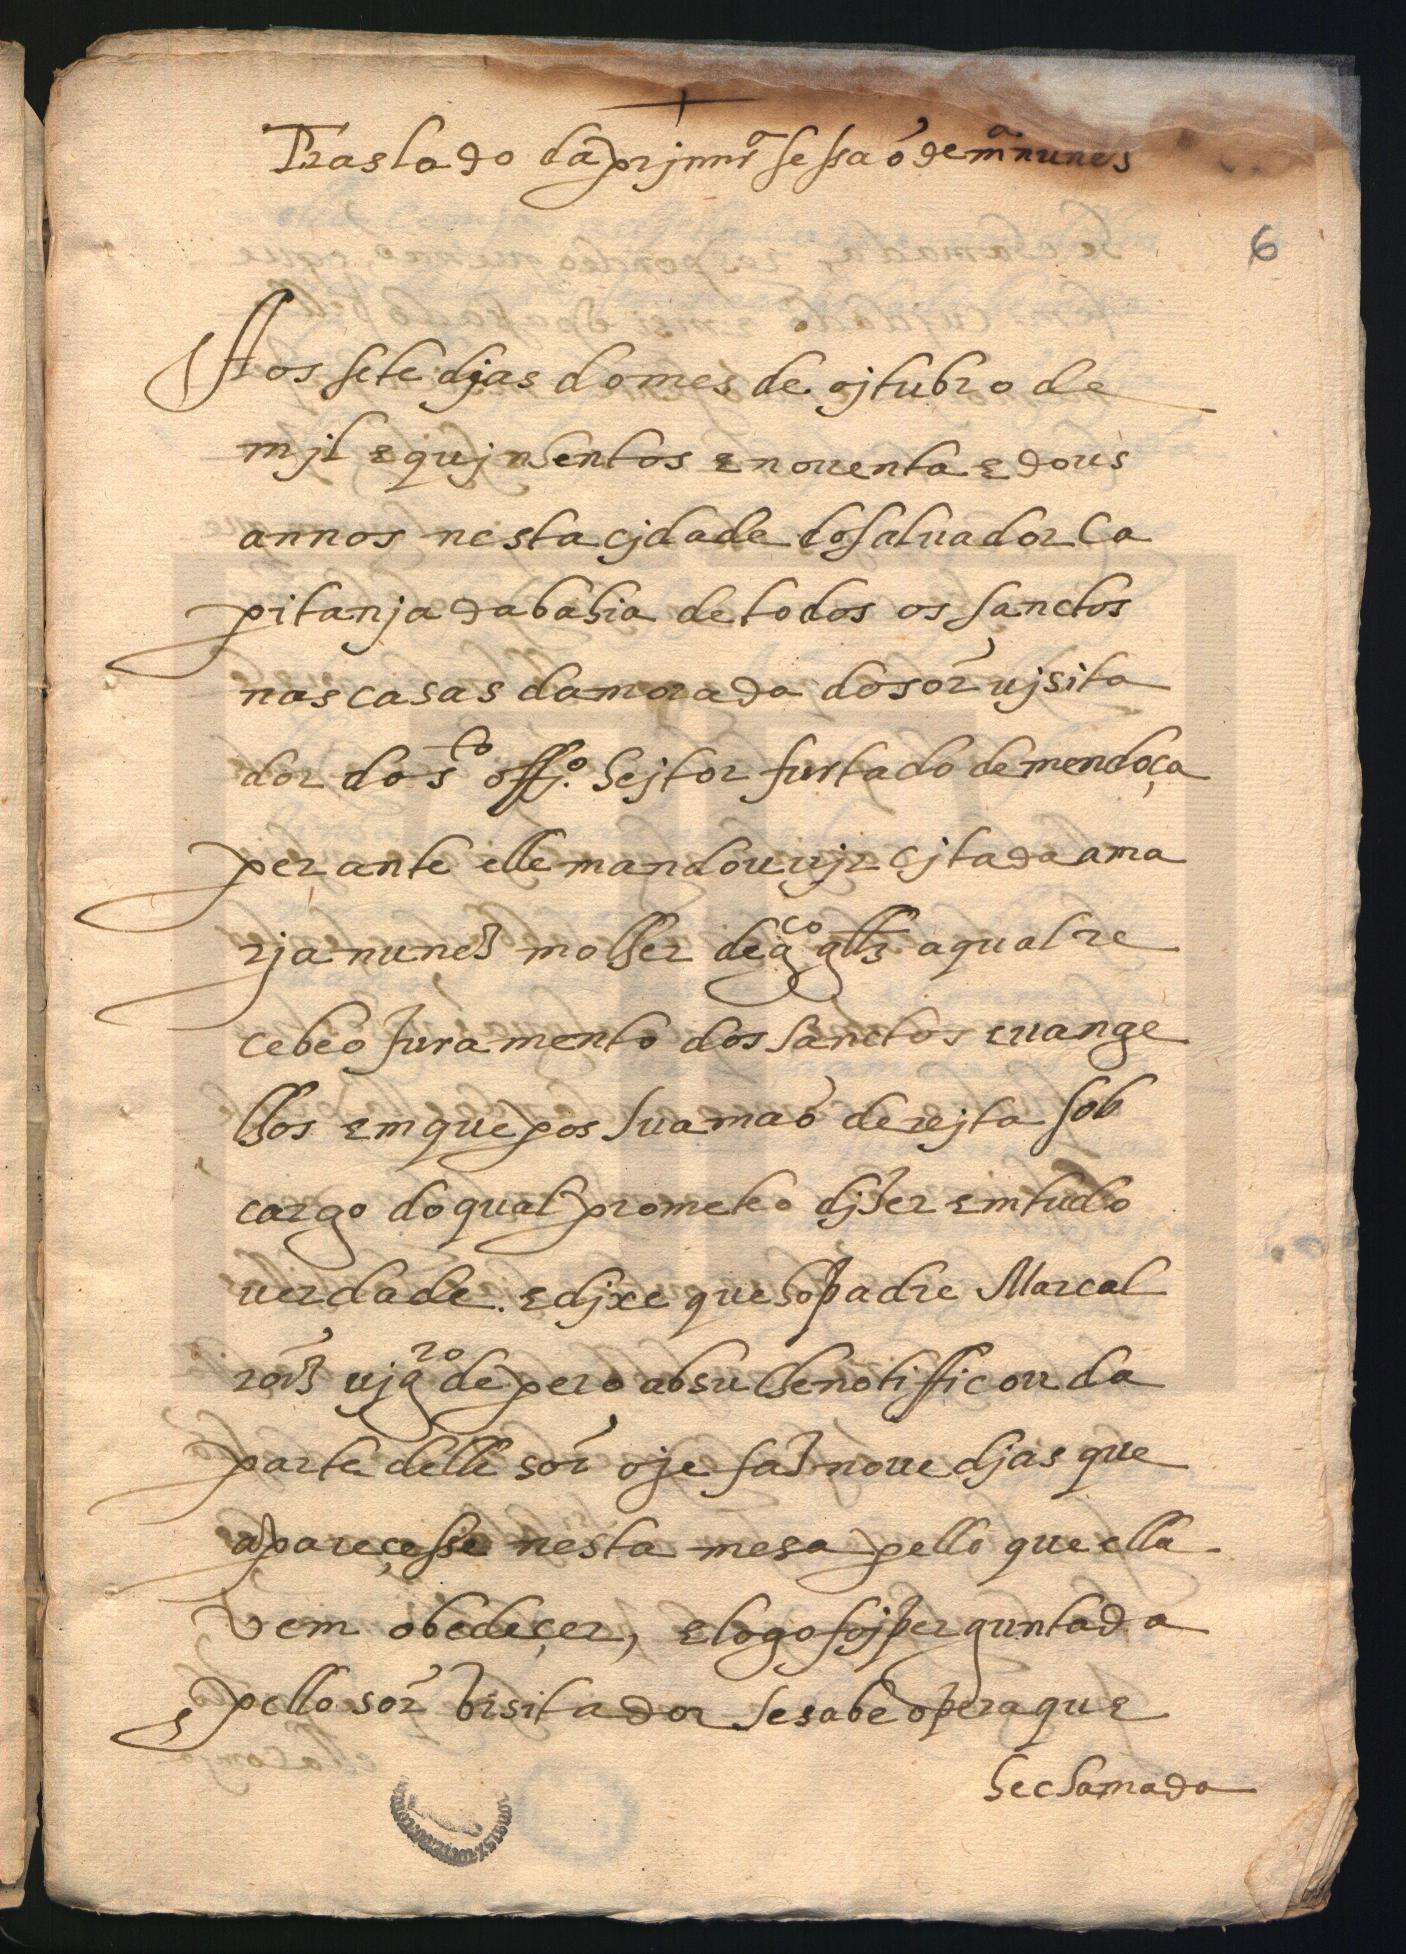 Traslado da prjmrª sessaõ de mª nunes
6
Aos sete djas do mes de ojtubro de
mjl e qujnhentos e nouenta e dous
annos nesta cjdade do saluador Ca
pitanja da bahia de todos os sanctos
nas casas da morada do sor ujsita
dor do sto offjº hejtor furtado de mendoça
perante elle mandou ujr cjtada a ma
rja nunez molher de gco glz a qual re
cebeo juramento dos sanctos euange
lhos em que pos sua maõ derejta sob
cargo do qual prometeo djzer em tudo
uerdade. e djxe que ho padre Marcal
roiz ujgro de pero absu lhe notifficou da
parte delle sor oje faz noue djas que
apareçesse nesta mesa pello que ella
vem obedeçer, e logo foj perguntada
pello sor bisitador se sabe o pera que
he chamada